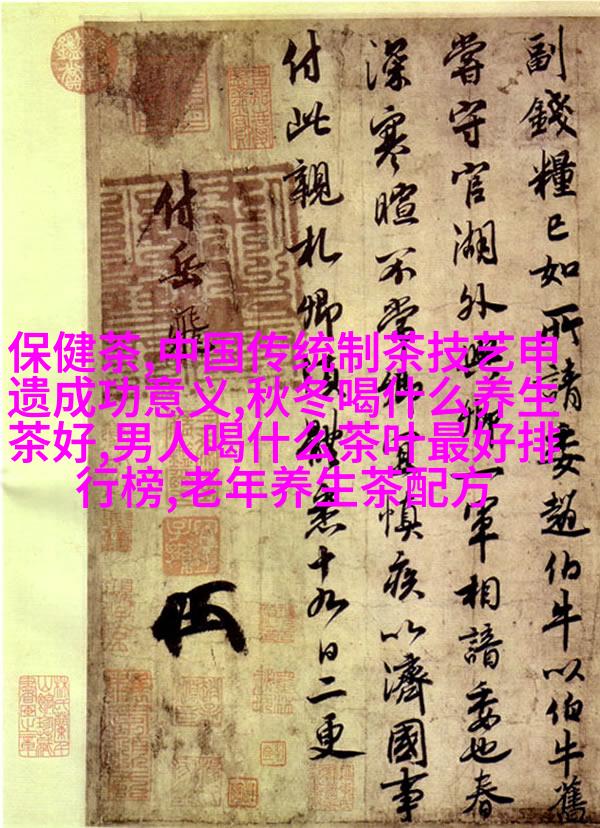 保健茶,中国传统制茶技艺申
遗成功意义,秋冬喝什么养生
茶好,男人喝什么茶叶最好排
行榜,老年养生茶配方
副錢糧已如所請委趙伯牛以伯牛舊
嘗守官湖外與卿一軍相諳委也春
深寒暄不常卿宜慎疾以濟國事
付此親札卿須體悉十九日二更
付岳飛